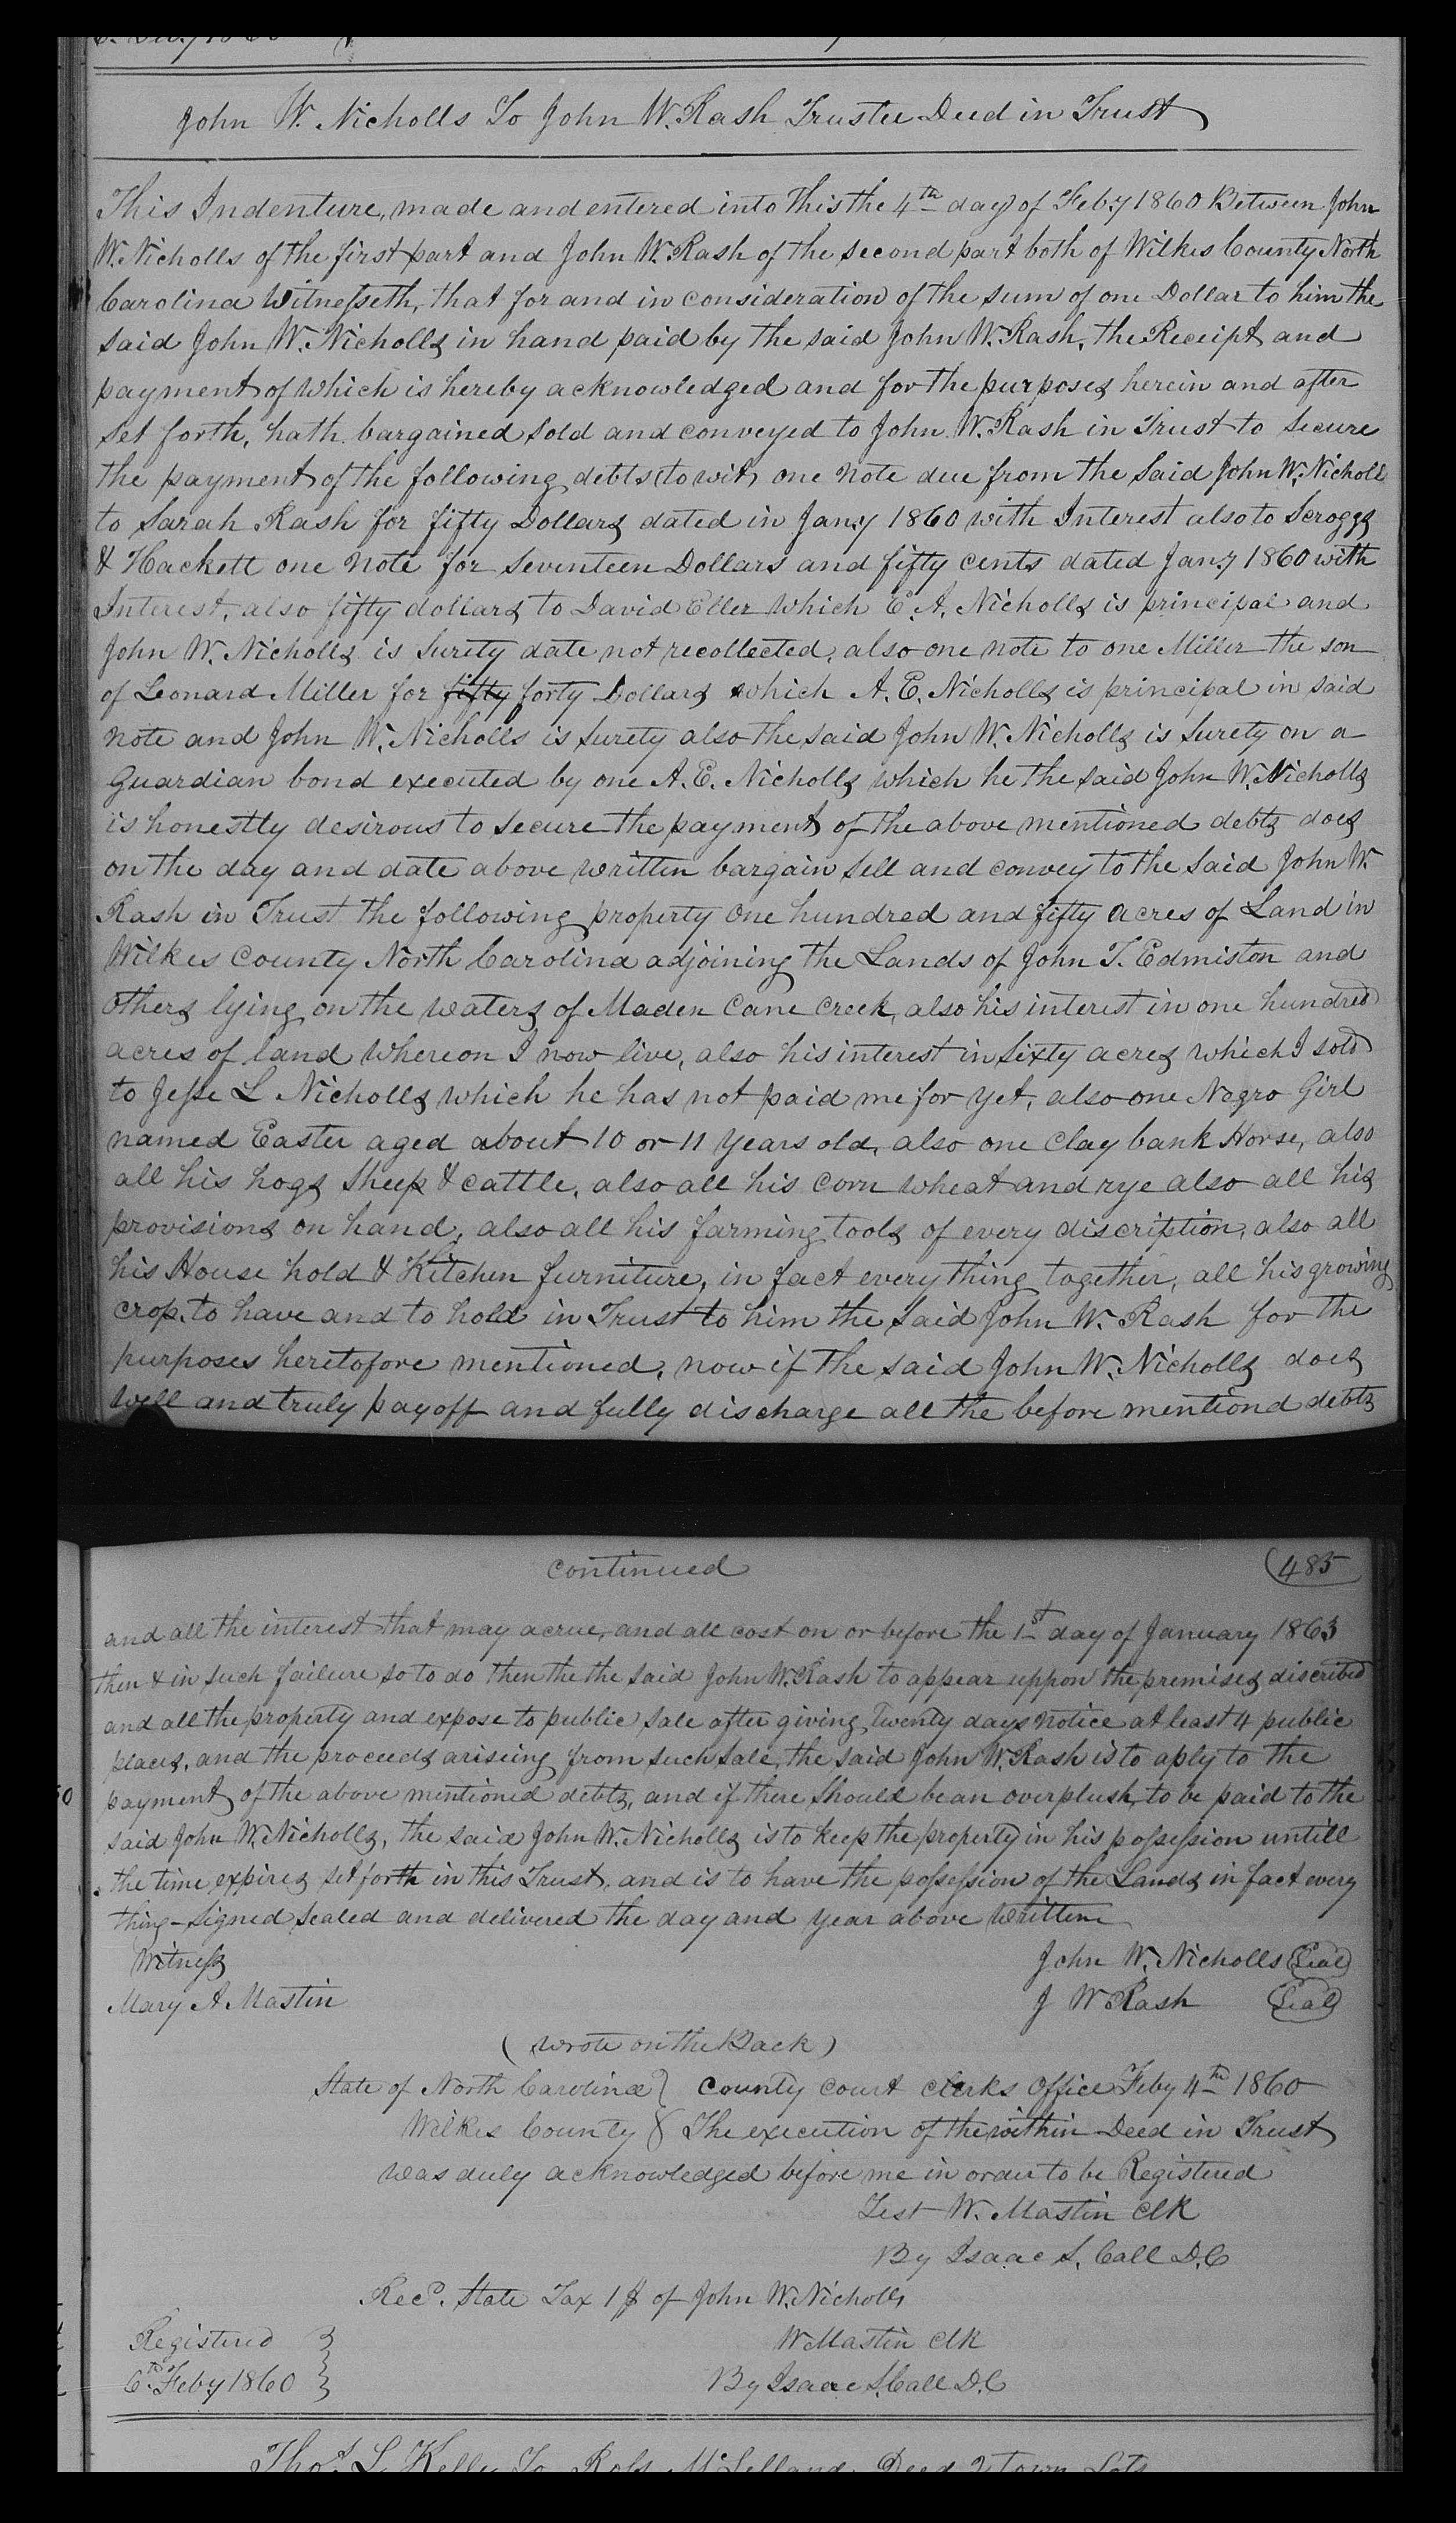 John W. Nicholls To John W. Rash Trustee Deed in Trust
This Indenture, made and entered into this the 4th day of Feby 1860 Between John
W. Nicholls of the first part and John W. Rash of the second part both of Wilkes County North
Carolina Witnesseth, that for and in consideration of the sum of one Dollar to him the
said John W. Nicholls in hand paid by the said John W. Rash, the Receipt and
payment of which is hereby acknowledged and for the purposes herein and after
set forth, hath bargained sold and conveyed to John W. Rash in Trust to secure
the payment of the following debts (to wit) one note due from the said John W. Nicholls
to Sarah Rash for fifty Dollars dated in Jany 1860 with Interest also to Scroggs
& Hackett one note for seventeen Dollars and fifty cents dated Jany 1860 with
Interest, also fifty dollars to David Eller which E. A. Nicholls is principal and
John W. Nicholls is surety date not recollected, also one note to one Miller the son
of Leonard Miller for fifty forty Dollars which A. E. Nicholls is principal in said
note and John W. Nicholls is surety also the said John W. Nicholls is surety on a
Guardian bond executed by one A. E. Nicholls which he the said John W. Nicholls
is honestly desirous to secure the payment of the above mentioned debts does
on the day and date above written bargain sell and convey to the said John W.
Rash in Trust the following property One hundred and fifty acres of Land in
Wilkes County North Carolina adjoining the Lands of John T. Edmiston and
others lying on the waters of Maden Cane Creek, also his interest in one hundred
acres of land whereon I now live, also his interest in sixty acres which I sold
to Jesse L Nicholls which he has not paid me for yet, also one Negro Girl
named Easter aged about 10 or 11 years old, also one Clay bank Horse, also
all his hogs sheep & cattle, also all his corn wheat and rye also all his
provisions on hand, also all his farming tools of every discription, also all
his House hold & Kitchen furniture, in fact every thing together, all his growing
crop, to have and to hold in Trust to him the said John W. Rash for the
purposes heretofore mentioned, now if the said John W. Nicholls does
well and truly pay off and fully discharge all the before mentiond debts
continued 485
and all the interest that may acrue, and all cost on or before the 1st day of January 1863
then & in such failure so to do then the the said John W. Rash to appear uppon the premises discribed
and all the property and expose to public sale after giving Twenty days notice at least 4 public
places, and the proceeds ariseing from such sale, the said John W. Rash is to aply to the
payment of the above mentioned debts, and if there should be an overplush, to be paid to the
said John W. Nicholls, the said John W. Nicholls is to keep the property in his possession untill
the time expires set forth in this Trust, and is to have the possession of the Lands in fact every
thing - Signed Sealed and delivered the day and year above written
Witness John W. Nicholls Seal
Mary A Mastin J W Rash Seal
( wrote on the Back )
State of North Carolina } County Court Clerks Office Feby 4th 1860
Wilkes County } The execution of the within Deed in Trust
was duly acknowledged before me in order to be Registered
Test W. Mastin Clk
By Isaac S. Call D.C
Recd. State Tax 1$ of John W. Nicholls
Registered } W Mastin Clk
6th Feby 1860 } By Isaac S. Call D.C
Thos. L Kelly To